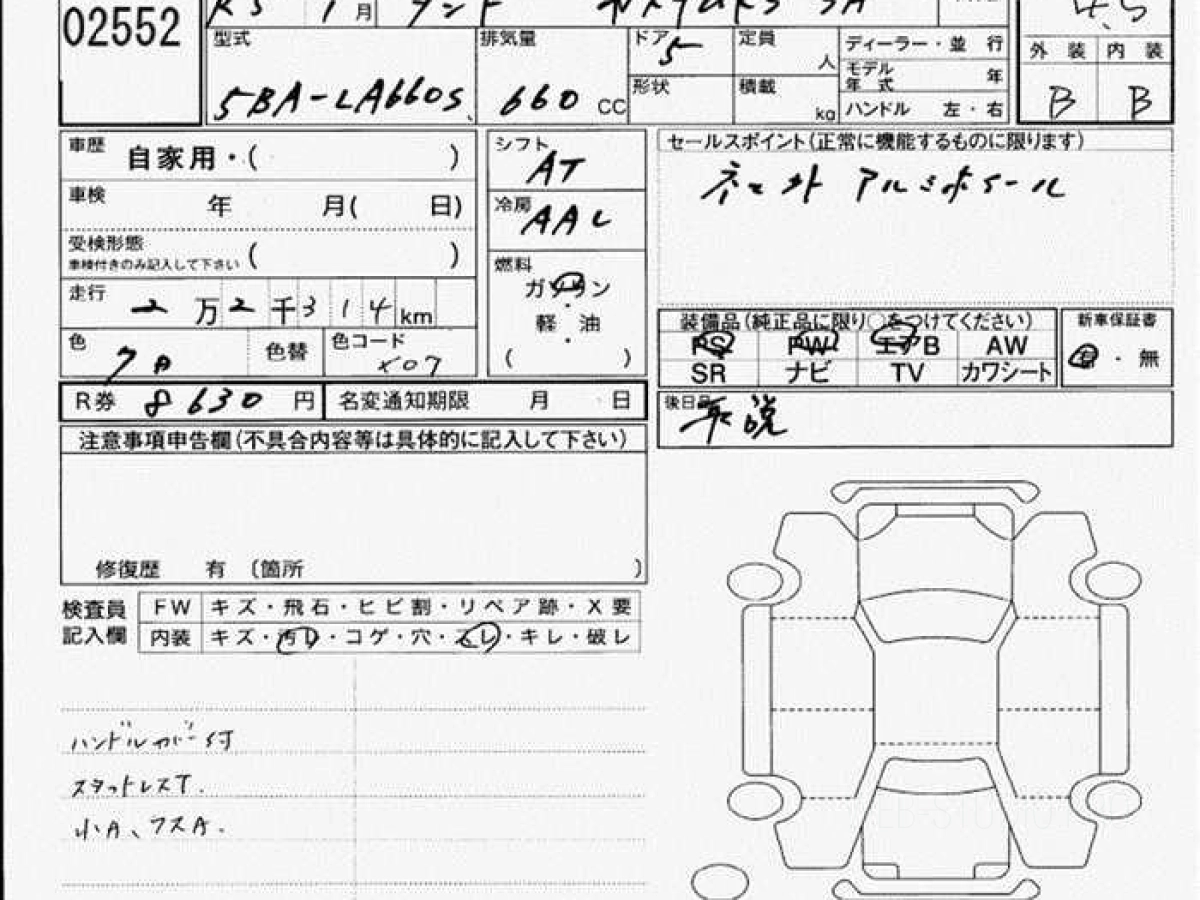 02552
R5 1 月 タント
型式 5BA-LA660S
排気量 660 CC
ドア 5
形状
定員 人
積載 kg
ディーラー・並 行
モデル年 式 年
ハンドル 左・右
4.5
外 装 内 装
B B
車歴 自家用・( )
車検 年 月( 日)
受検形態
車検付きのみ記入して下さい ( )
走行 2 万 2 千 3 1 4 km
色 色替 色コード X07
R券 8630 円 名変通知期限 月 日
シフト AT
冷房 AAC
燃料
ガソリン
・
軽 油
・
( )
セールスポイント(正常に機能するものに限ります)
アルミホイール
装備品(純正品に限り○をつけてください)
PS PW エアB AW
SR ナビ TV カワシート
新車保証書
有・無
後日品 取説
注意事項申告欄(不具合内容等は具体的に記入して下さい)
修復歴 有 〔箇所 )
検査員
記入欄
FW キズ・飛石・ヒビ割・リペア跡・X要
内装 キズ・汚レ・コゲ・穴・スレ・キレ・破レ
ハンドルカバー付
スタッドレスT.
小A、フスA.